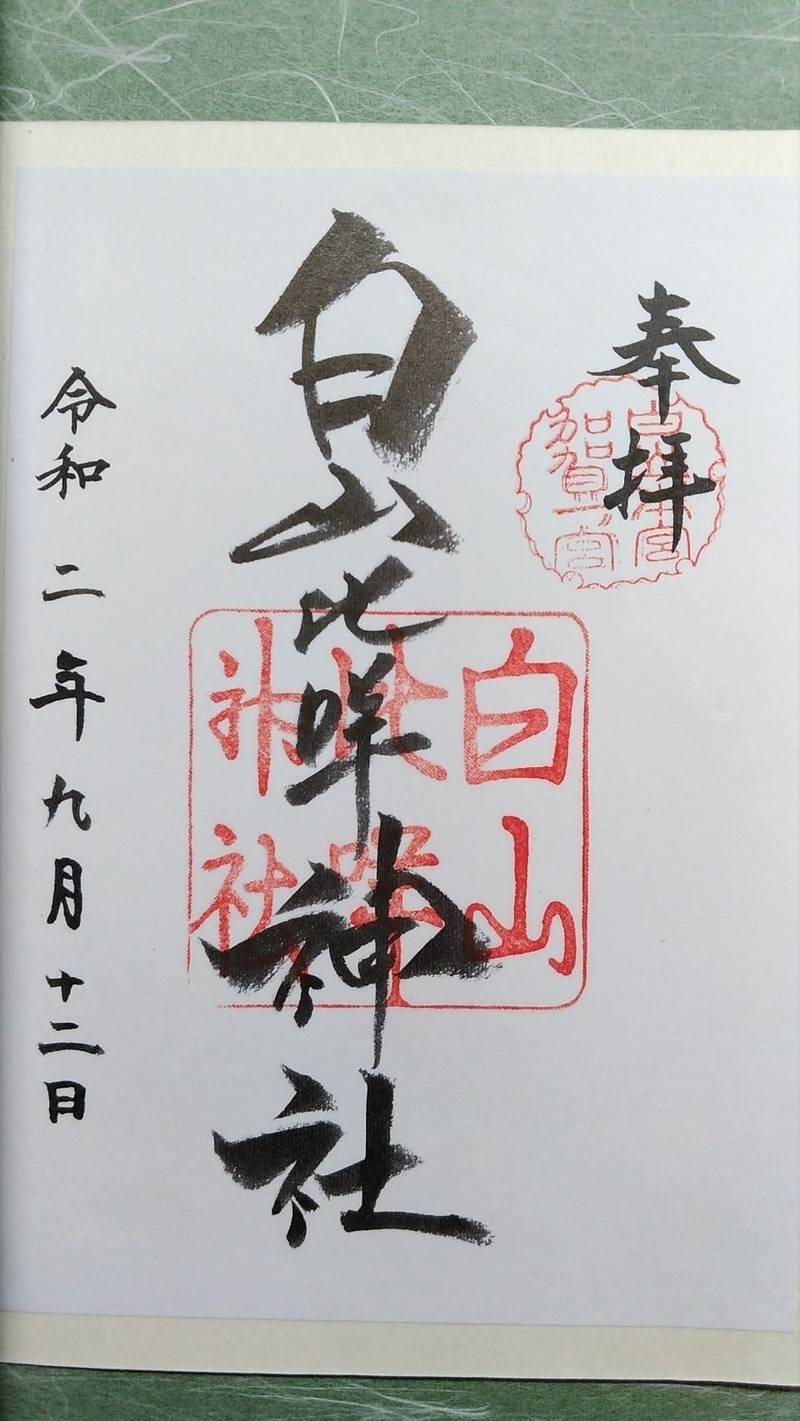 奉拝
白山比咩神社
白山
比咩
神社
令和二年九月十二日